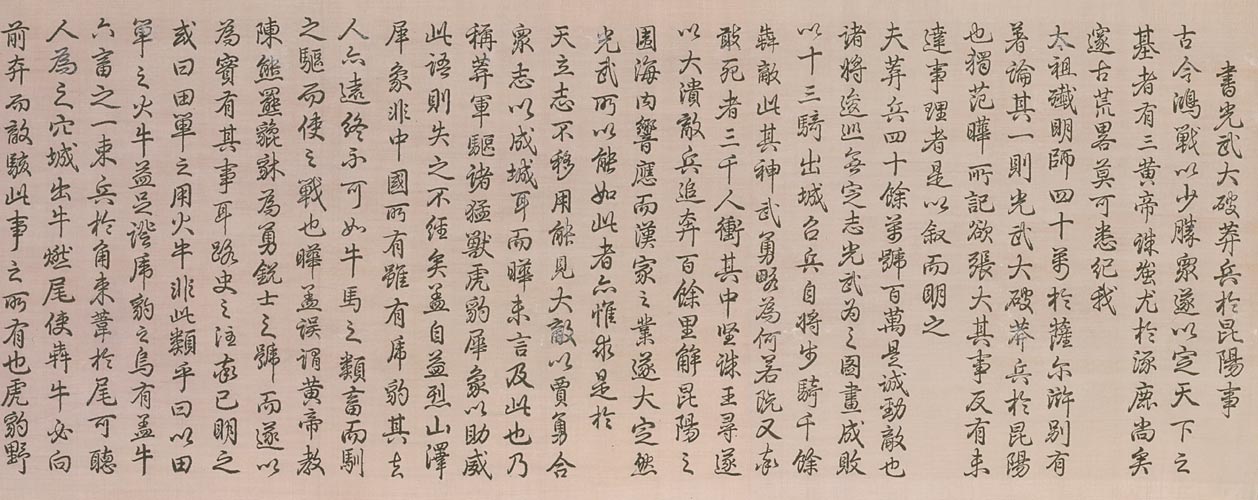 書光武大破莽兵於昆陽事
古今鴻戰以少勝衆遂以定天下之
基者有三黃帝誅蚩尤於涿鹿尚矣
邃古荒畧莫可悉紀我
太祖殲明師四十萬於薩尔滸別有
著論其一則光武大破莽兵於昆陽
也獨范曄所記欲張大其事反有未
達事理者是以叙而明之
夫莽兵四十餘萬號百萬是誠勁敵也
諸將逡巡無定志光武為之圖畫成敗
以十三騎出城召兵自將步騎千餘
犇敵此其神武勇略為何若既又率
敢死者三千人衝其中堅誅王尋遂
以大潰敵兵追奔百餘里解昆陽之
圍海内響應而漢家之業遂大定然
光武所以能如此者亦惟求是於
天立志不移用能見大敵以賈勇合
衆志以成城耳而曄未言及此也乃
稱莽軍驅諸猛獸虎豹犀象以助威
此語則失之不經矣盖自益烈山澤
犀象非中國所有雖有虎豹其去
人亦遠終不可如牛馬之類畜而馴
之驅而使之戰也曄盖誤謂黃帝教
陳熊羆貔貅為勇銳士之號而遂以
為實有其事耳路史之注亦已明之
或曰田單之用火牛非此類乎曰以田
單之火牛益足證虎豹之烏有盖牛
六畜之一束兵於角束葦於尾可聽
人為之穴城出牛燃尾使犇牛必向
前奔而敵駭此事之所有也虎豹野